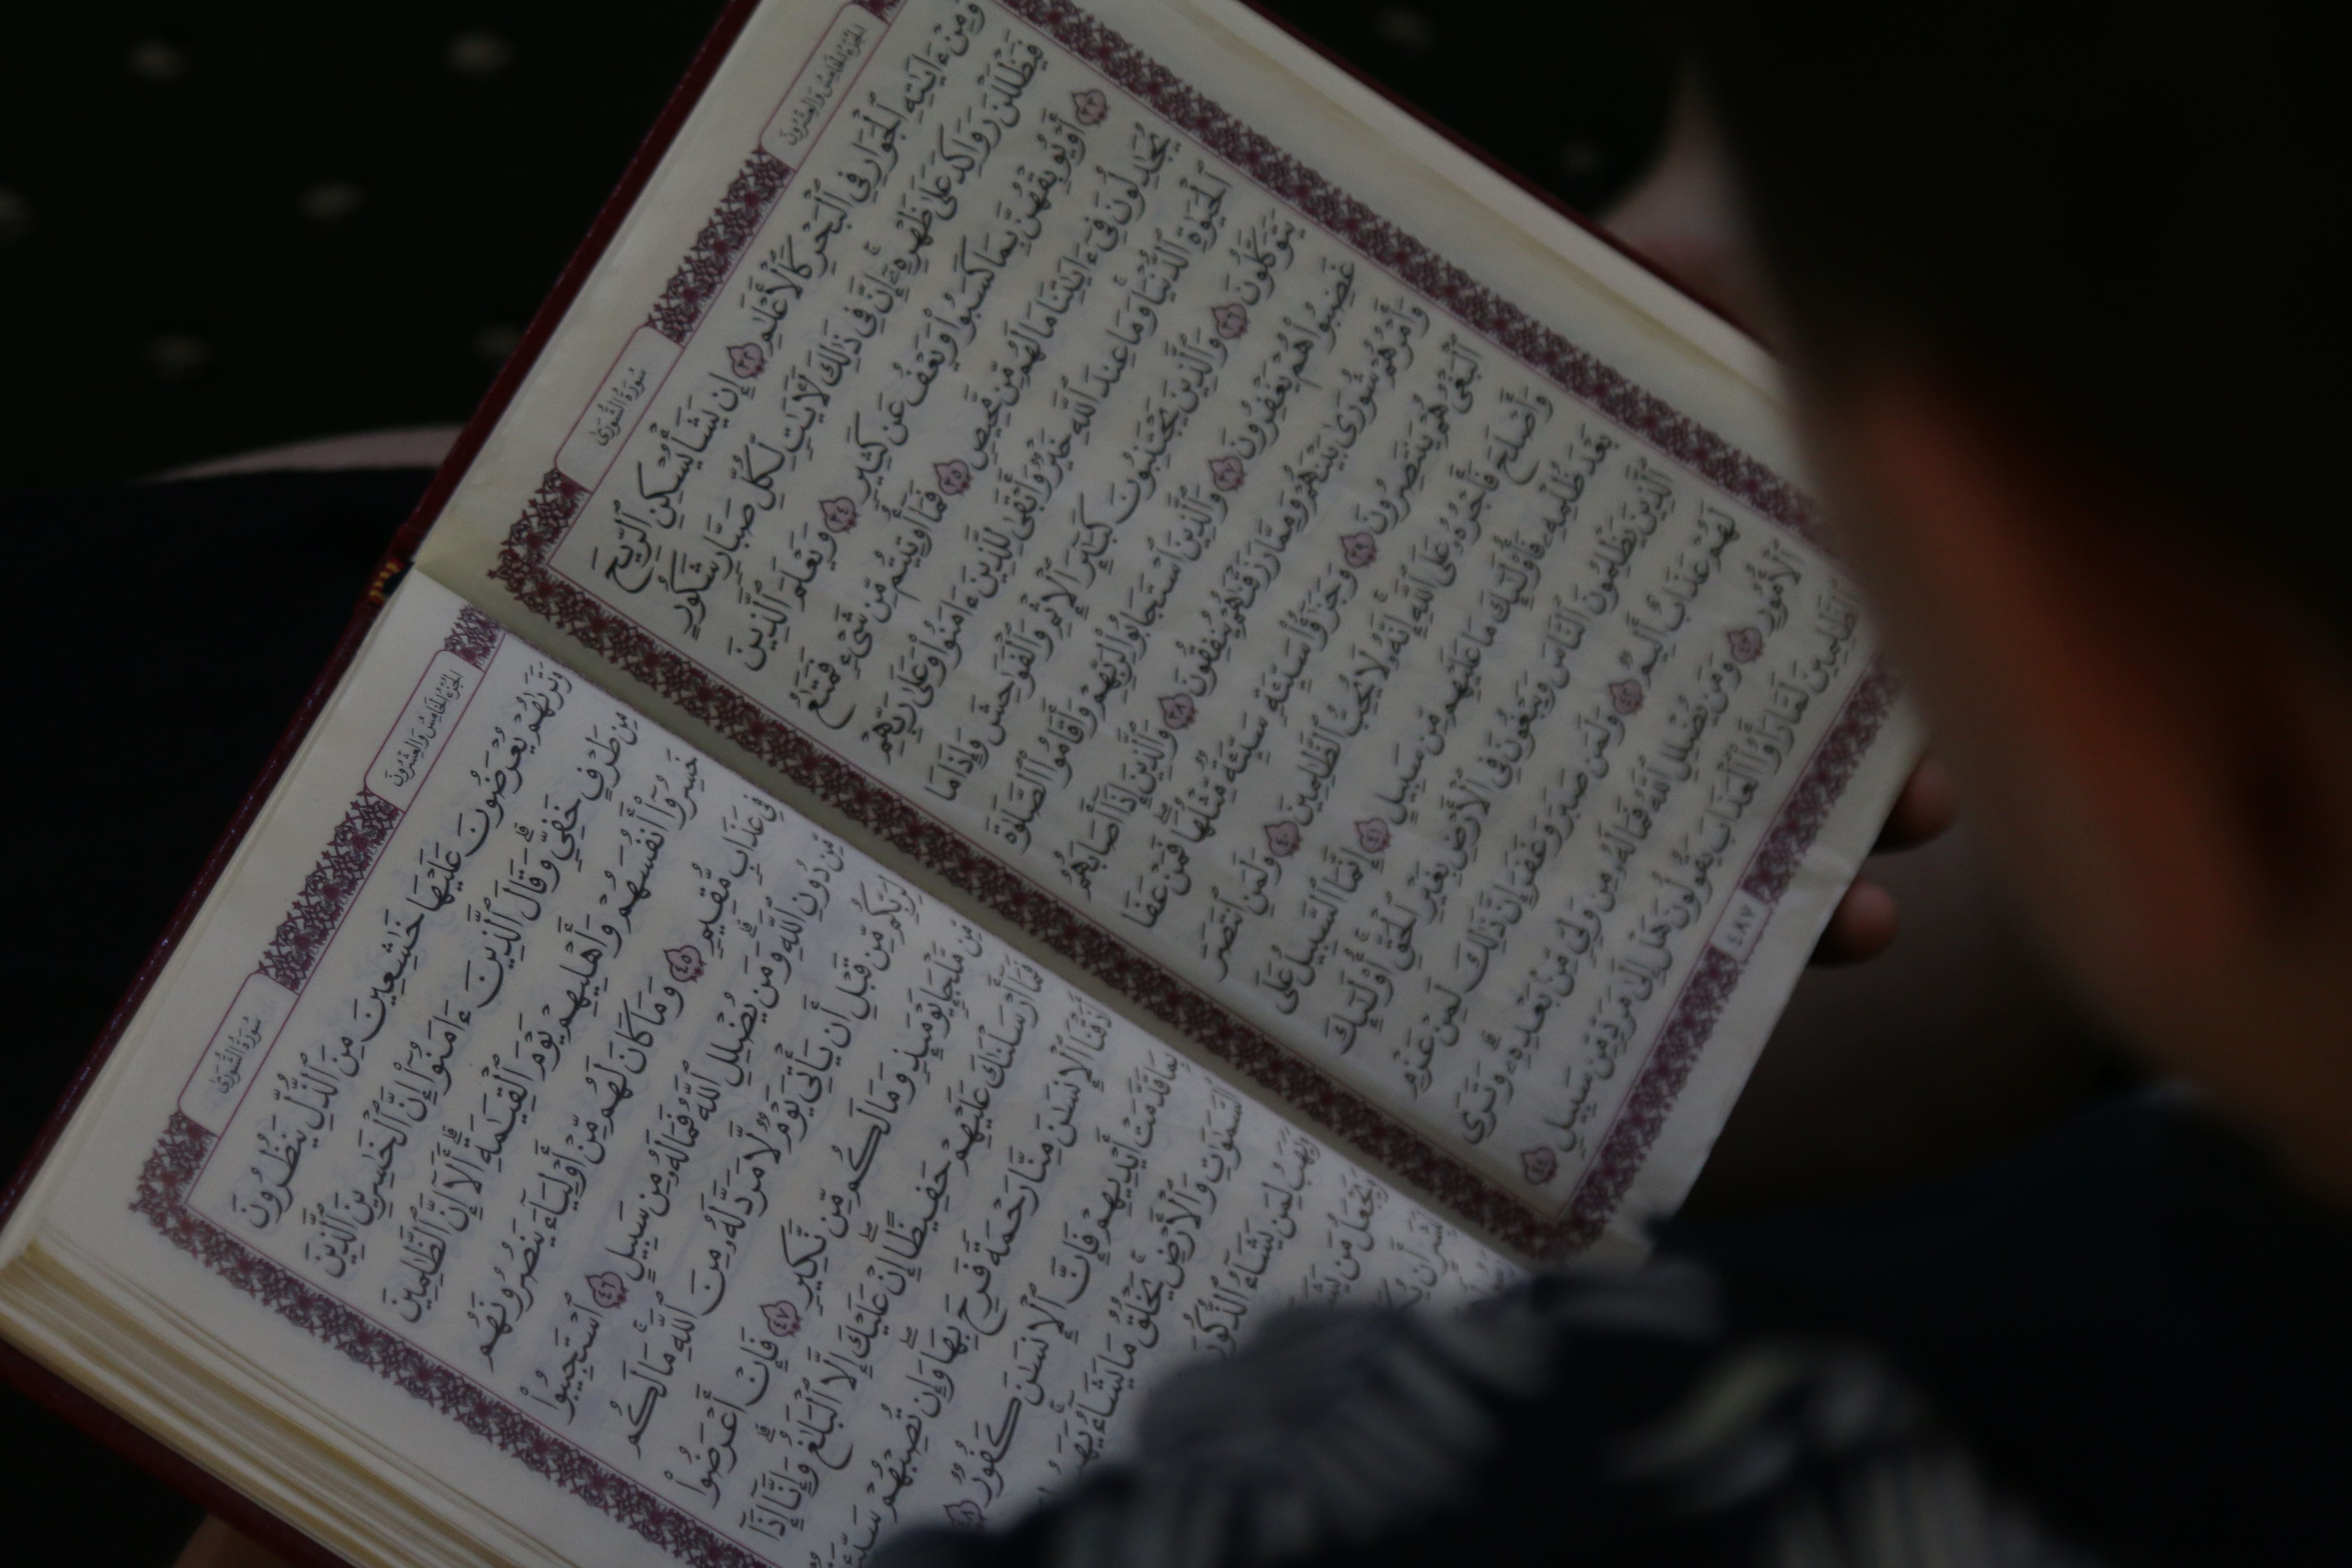 الجزء الخامس والعشرون
سورة الشورى
وَمِنْ ءَايَٰتِهِ ٱلْجَوَارِ فِى ٱلْبَحْرِ كَٱلْأَعْلَٰمِ ٣٢ إِن يَشَأْ يُسْكِنِ ٱلرِّيحَ
فَيَظْلَلْنَ رَوَاكِدَ عَلَىٰ ظَهْرِهِۦٓ ۚ إِنَّ فِى ذَٰلِكَ لَءَايَٰتٍ لِّكُلِّ صَبَّارٍ شَكُورٍ
٣٣ أَوْ يُوبِقْهُنَّ بِمَا كَسَبُوا۟ وَيَعْفُ عَن كَثِيرٍ ٣٤ وَيَعْلَمَ ٱلَّذِينَ
يُجَٰدِلُونَ فِىٓ ءَايَٰتِنَا مَا لَهُم مِّن مَّحِيصٍ ٣٥ فَمَآ أُوتِيتُم مِّن شَىْءٍ فَمَتَٰعُ
ٱلْحَيَوٰةِ ٱلدُّنْيَا ۖ وَمَا عِندَ ٱللَّهِ خَيْرٌ وَأَبْقَىٰ لِلَّذِينَ ءَامَنُوا۟ وَعَلَىٰ رَبِّهِمْ
يَتَوَكَّلُونَ ٣٦ وَٱلَّذِينَ يَجْتَنِبُونَ كَبَٰٓئِرَ ٱلْإِثْمِ وَٱلْفَوَٰحِشَ وَإِذَا مَا
غَضِبُوا۟ هُمْ يَغْفِرُونَ ٣٧ وَٱلَّذِينَ ٱسْتَجَابُوا۟ لِرَبِّهِمْ وَأَقَامُوا۟ ٱلصَّلَوٰةَ
وَأَمْرُهُمْ شُورَىٰ بَيْنَهُمْ وَمِمَّا رَزَقْنَٰهُمْ يُنفِقُونَ ٣٨ وَٱلَّذِينَ إِذَآ أَصَابَهُمُ
ٱلْبَغْىُ هُمْ يَنتَصِرُونَ ٣٩ وَجَزَٰٓؤُا۟ سَيِّئَةٍ سَيِّئَةٌ مِّثْلُهَا ۖ فَمَنْ عَفَا
وَأَصْلَحَ فَأَجْرُهُۥ عَلَى ٱللَّهِ ۚ إِنَّهُۥ لَا يُحِبُّ ٱلظَّٰلِمِينَ ٤٠ وَلَمَنِ ٱنتَصَرَ
بَعْدَ ظُلْمِهِۦ فَأُو۟لَٰٓئِكَ مَا عَلَيْهِم مِّن سَبِيلٍ ٤١ إِنَّمَا ٱلسَّبِيلُ عَلَى
ٱلَّذِينَ يَظْلِمُونَ ٱلنَّاسَ وَيَبْغُونَ فِى ٱلْأَرْضِ بِغَيْرِ ٱلْحَقِّ ۚ أُو۟لَٰٓئِكَ
لَهُمْ عَذَابٌ أَلِيمٌ ٤٢ وَلَمَن صَبَرَ وَغَفَرَ إِنَّ ذَٰلِكَ لَمِنْ عَزْمِ
ٱلْأُمُورِ ٤٣ وَمَن يُضْلِلِ ٱللَّهُ فَمَا لَهُۥ مِن وَلِىٍّ مِّنۢ بَعْدِهِۦ ۗ وَتَرَى
ٱلظَّٰلِمِينَ لَمَّا رَأَوُا۟ ٱلْعَذَابَ يَقُولُونَ هَلْ إِلَىٰ مَرَدٍّ مِّن سَبِيلٍ ٤٤
٤٨٧
الجزء الخامس والعشرون
سورة الشورى
وَتَرَىٰهُمْ يُعْرَضُونَ عَلَيْهَا خَٰشِعِينَ مِنَ ٱلذُّلِّ يَنظُرُونَ
مِن طَرْفٍ خَفِىٍّ ۗ وَقَالَ ٱلَّذِينَ ءَامَنُوٓا۟ إِنَّ ٱلْخَٰسِرِينَ ٱلَّذِينَ
خَسِرُوٓا۟ أَنفُسَهُمْ وَأَهْلِيهِمْ يَوْمَ ٱلْقِيَٰمَةِ ۗ أَلَآ إِنَّ ٱلظَّٰلِمِينَ
فِى عَذَابٍ مُّقِيمٍ ٤٥ وَمَا كَانَ لَهُم مِّنْ أَوْلِيَآءَ يَنصُرُونَهُم
مِّن دُونِ ٱللَّهِ ۗ وَمَن يُضْلِلِ ٱللَّهُ فَمَا لَهُۥ مِن سَبِيلٍ ٤٦ ٱسْتَجِيبُوا۟
لِرَبِّكُم مِّن قَبْلِ أَن يَأْتِىَ يَوْمٌ لَّا مَرَدَّ لَهُۥ مِنَ ٱللَّهِ ۚ مَا لَكُم
مِّن مَّلْجَإٍ يَوْمَئِذٍ وَمَا لَكُم مِّن نَّكِيرٍ ٤٧ فَإِنْ أَعْرَضُوا۟
فَمَآ أَرْسَلْنَٰكَ عَلَيْهِمْ حَفِيظًا ۖ إِنْ عَلَيْكَ إِلَّا ٱلْبَلَٰغُ ۗ وَإِنَّآ إِذَآ
أَذَقْنَا ٱلْإِنسَٰنَ مِنَّا رَحْمَةً فَرِحَ بِهَا ۖ وَإِن تُصِبْهُمْ سَيِّئَةٌۢ
بِمَا قَدَّمَتْ أَيْدِيهِمْ فَإِنَّ ٱلْإِنسَٰنَ كَفُورٌ ٤٨
ٱلسَّمَٰوَٰتِ وَٱلْأَرْضِ ۚ يَخْلُقُ مَا يَشَآءُ ۚ يَهَبُ
وَيَهَبُ لِمَن يَشَآءُ ٱلذُّكُورَ
وَيَجْعَلُ مَن يَشَآءُ
لِبَشَرٍ أَن